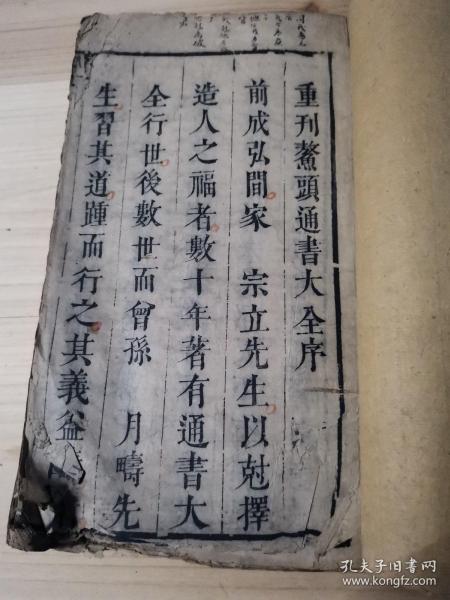 重刊鰲頭通書大全序
前成弘間家 宗立先生以尅擇
造人之福者數十年著有通書大
全行世後數世而曾孫 月疇先
生習其道踵而行之其義益
孔夫子旧书网
www.kongfz.com